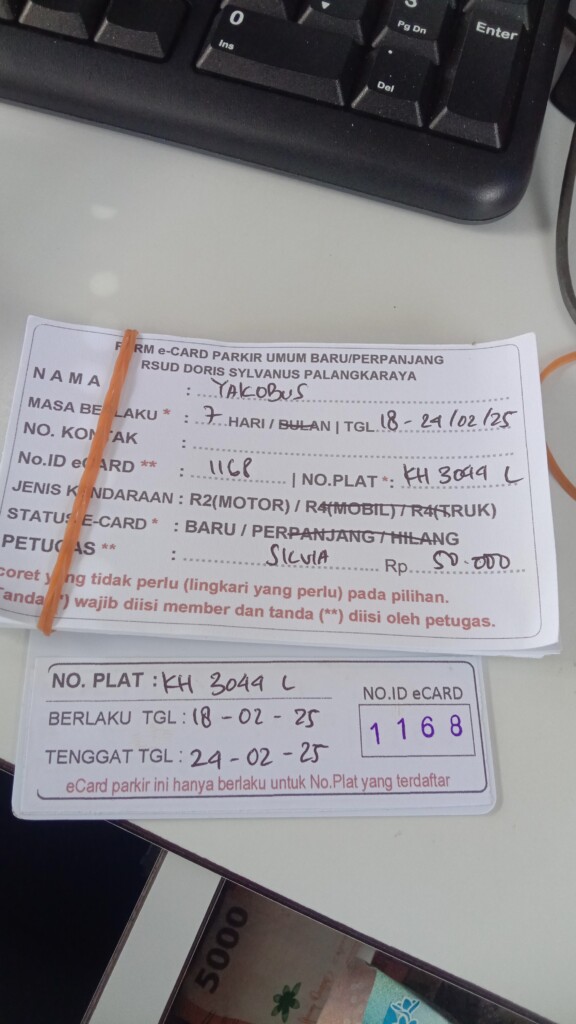 0
Ins
Pg Dn
.
Del
Enter
FORM e-CARD PARKIR UMUM BARU/PERPANJANG
RSUD DORIS SYLVANUS PALANGKARAYA
NAMA : YAKOBUS
MASA BERLAKU * : 7 HARI / BULAN | TGL 18 - 24/02/25
NO. KONTAK :
No.ID eCARD ** : 1168 | NO.PLAT *: KH 3044 L
JENIS KENDARAAN : R2(MOTOR) / R4(MOBIL) / R4(TRUK)
STATUS E-CARD * : BARU / PERPANJANG / HILANG
PETUGAS ** : SILVIA Rp 50.000
coret yang tidak perlu (lingkari yang perlu) pada pilihan.
Tanda (*) wajib diisi member dan tanda (**) diisi oleh petugas.
NO. PLAT : KH 3044 L
BERLAKU TGL : 18 - 02 - 25
TENGGAT TGL : 24 - 02 - 25
NO.ID eCARD
1168
eCard parkir ini hanya berlaku untuk No.Plat yang terdaftar
5000